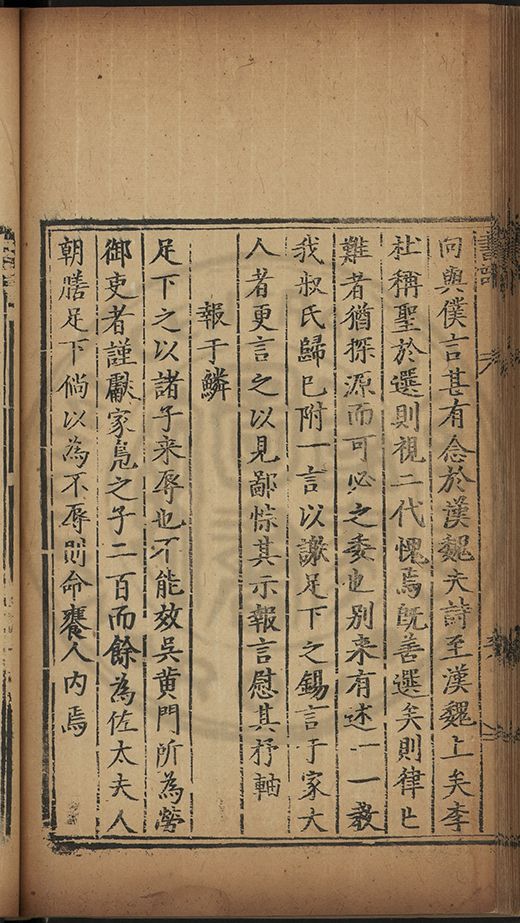 向與僕言甚有念於漢魏夫詩至漢魏上矣李
杜稱聖於選則視二代愧焉旣善選矣則律七
難者猶探源而可必之委也別来有述一一教
我叔氏歸已附一言以謝足下之錫言于家大
人者更言之以見鄙悰其示報言慰其抒軸
報于鱗
足下之以諸子来辱也不能效吳黄門所為勞
御吏者謹獻家鳬之子二百而餘為佐太夫人
朝膳足下倘以為不辱則命饔人内焉